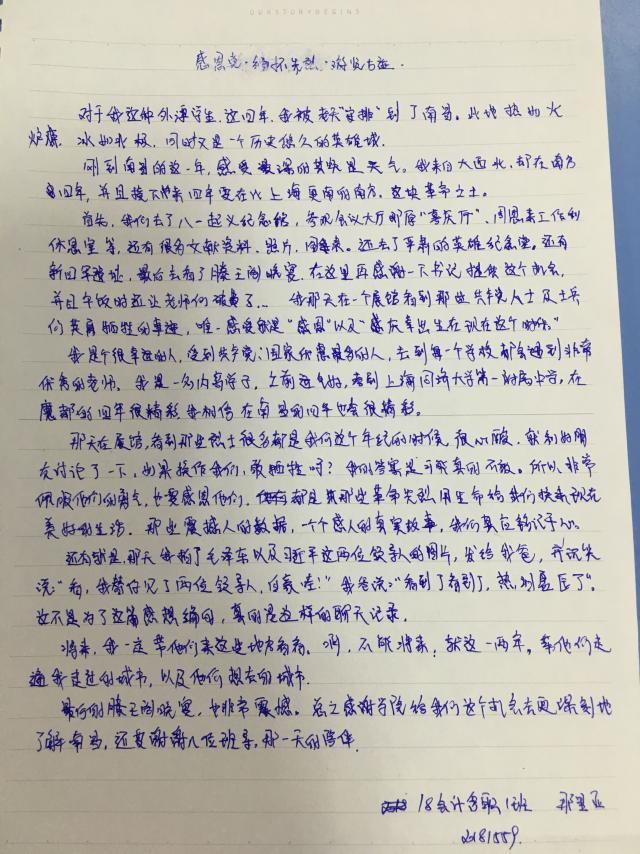 OURSTORYBEGINS
感恩党·缅怀先烈·游览古迹.
对于我这种外漂学生,这四年,我被老天"安排"到了南昌。此地热如火
炉, 冰如北极,同时又是一个历史悠久的英雄城.
刚到南昌的这一年,感受最深的其实是天气。我来自大西北,却在南方
四年,并且接下来四年要在比上海更南的南方,这块革命之土。
首先,我们去了八一起义纪念馆,参观会议大厅那厅"喜庆厅"、周恩来工作和
休息室等,还有很多文献资料、照片、 还去了 的英雄纪念堂。还有
新四军遗址,最后去看了滕王阁晚宴,在这里再感谢一下书记,提供这个机会,
并且午饭时还让老师们破费了... 我那天在一个展馆看到那些先锋人士及士兵
们英勇牺牲的事迹,唯一感受就是"感恩"以及"感庆幸出生在现在这个时代。"
我是个很幸运的人,受到共产党、国家优惠最多的人,去到每一个学校都会遇到非常
优秀的老师。我是一名内高学子,之前还 ,考到上海同济大学第一附属中学,在
魔都的四年很精彩,我相信在南昌的四年也会很精彩。
那天在展馆,看到那些烈士很多都是我们这个年纪的时候,很心酸,就和好朋
友讨论了一下,如果换作我们,敢牺牲吗?我的答案是可能真的不敢。所以非常
佩服他们的勇气,也要感恩他们, 都是那些革命先烈用生命给我们换来现在
美好的生活. 那些震撼人的数据,一个个感人的真实故事,我们真应铭记于心。
还有就是,那天我拍了毛泽东以及习近平这两位领导人的图片,发给我爸,开玩笑
说:"看,我替你见了两位领导人,白 哇!"我爸说:"看到了看到了,热 "。
这不是为了这篇感想编的,真的是这样的聊天记录.
将来,我一定带他们来这些地方看看。啊,不能将来,就这一两年,带他们走
遍我走过的城市,以及他们想去的城市.
最后的滕王阁晚宴,也非常震撼。总之感谢学院给我们这个机会去更深刻地
了解南昌,还要谢谢八位班导,那一天的陪伴.
18会计 1班 那里亚
2181559.